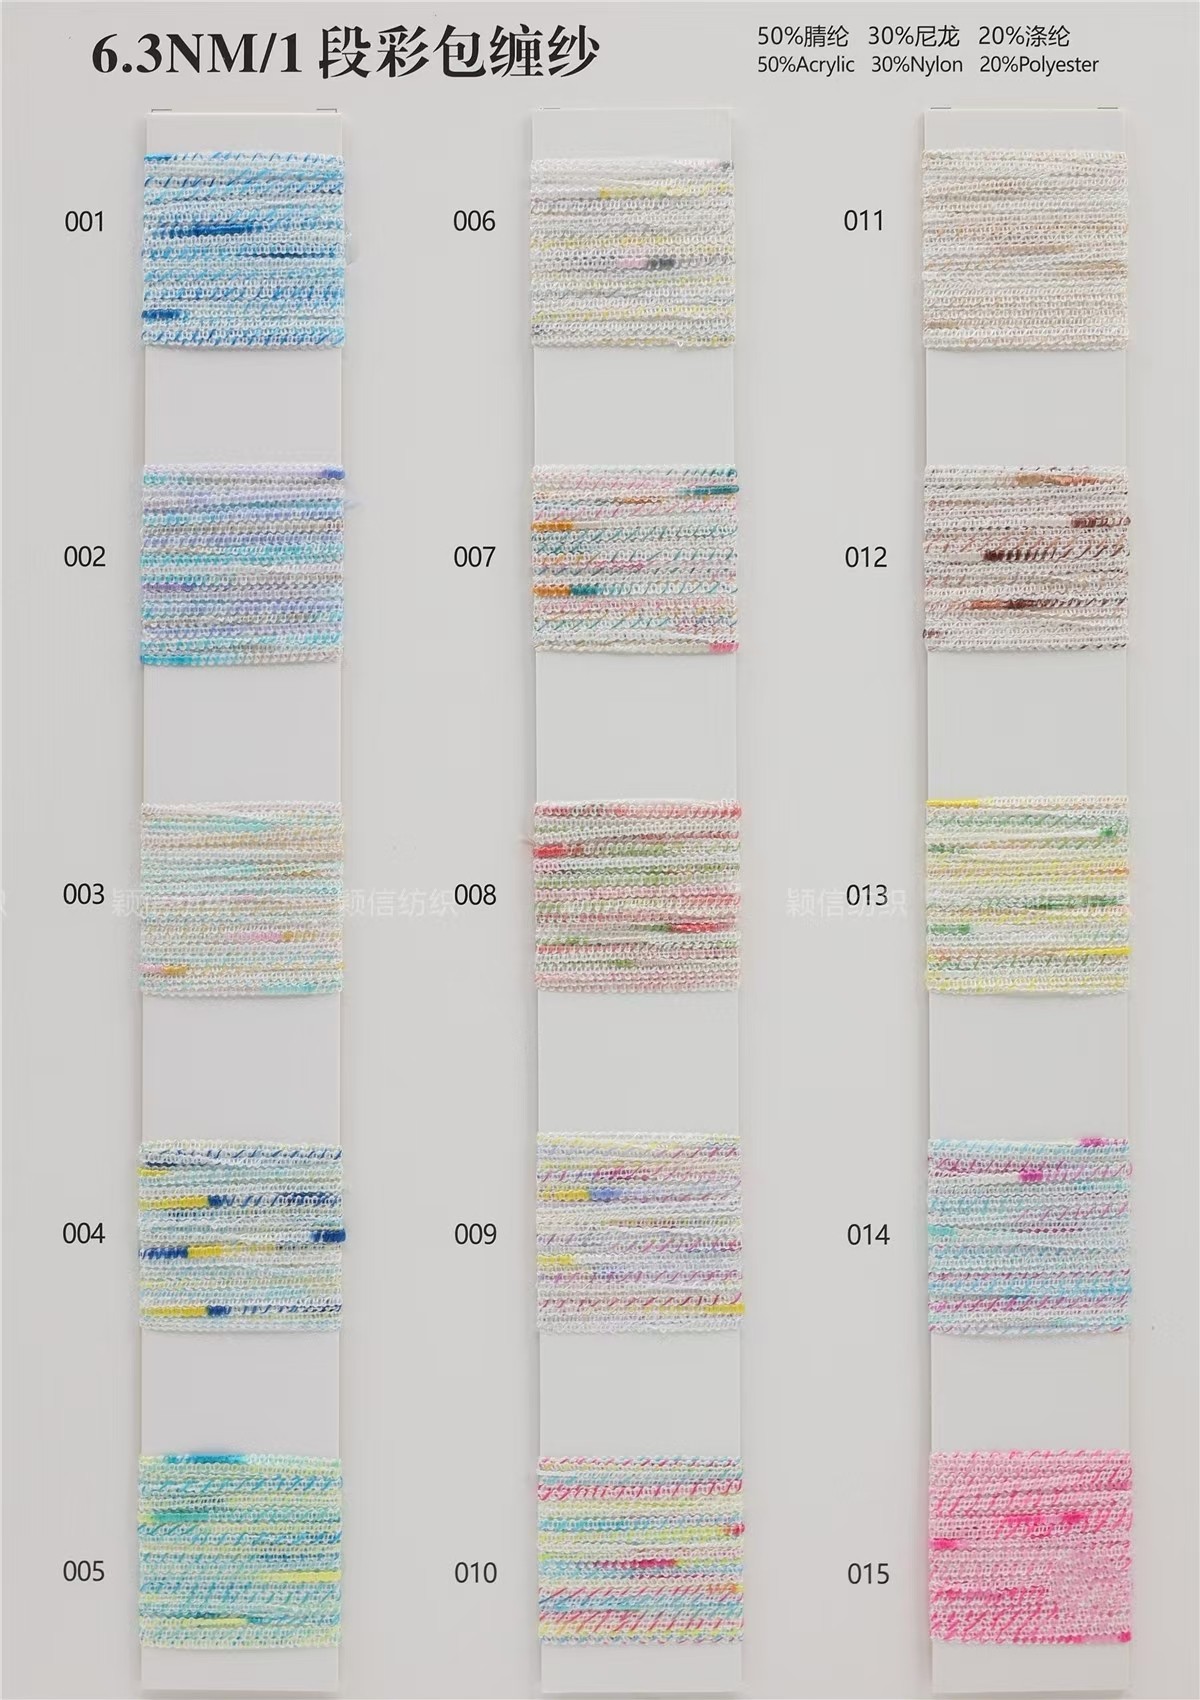 6.3NM/1 段彩包缠纱
50%腈纶 30%尼龙 20%涤纶
50%Acrylic 30%Nylon 20%Polyester
001
006
011
002
007
012
003
008
013
颖信纺织
颖信纺织
颖信纺织
颖信纺织
004
009
014
005
010
015